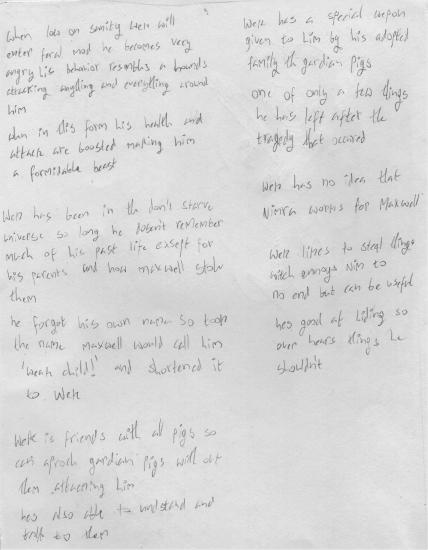 when low on sanity Wek will
enter feral mod he becomes very
angry his behavior resembls a hounds
attacking anything and everything around
him
when in this form his health and
attack are boosted making him
a formidable beast
Wek has been in th don't starve
universe so long he doesn't remember
much of his past life except for
his parents and how maxwell stole
them
he forgot his own name so took
the name Maxwell would call him
'weak child!' and shortened it
to Wek
Wek is friends with all pigs so
can aproch gardian pigs with out
them attacking him
hes also able to undstand and
talk to them
Wek has a special wepon
given to him by his adopted
family th gardian pigs
one of only a few things
he has left after the
tragedy that occured
Wek has no idea that
works for Maxwell
Wek likes to steal things
witch annoys him to
no end but can be useful
hes good at hiding so
over hears things he
shouldn't